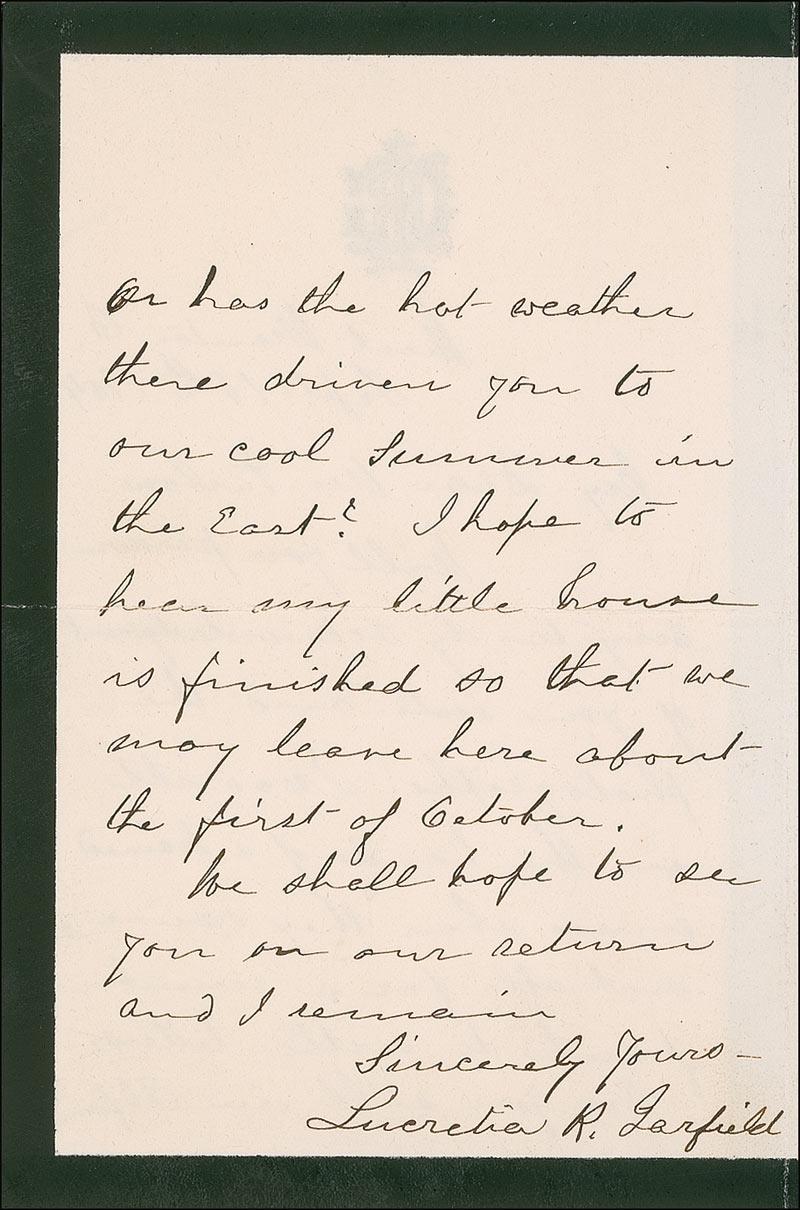 Or has the hot weather
there driven you to
our cool Summer in
the East? I hope to
hear my little house
is finished so that we
may leave here about
the first of October.
We shall hope to see
you on our return
and I remain
Sincerely Yours -
Lucretia R. Garfield